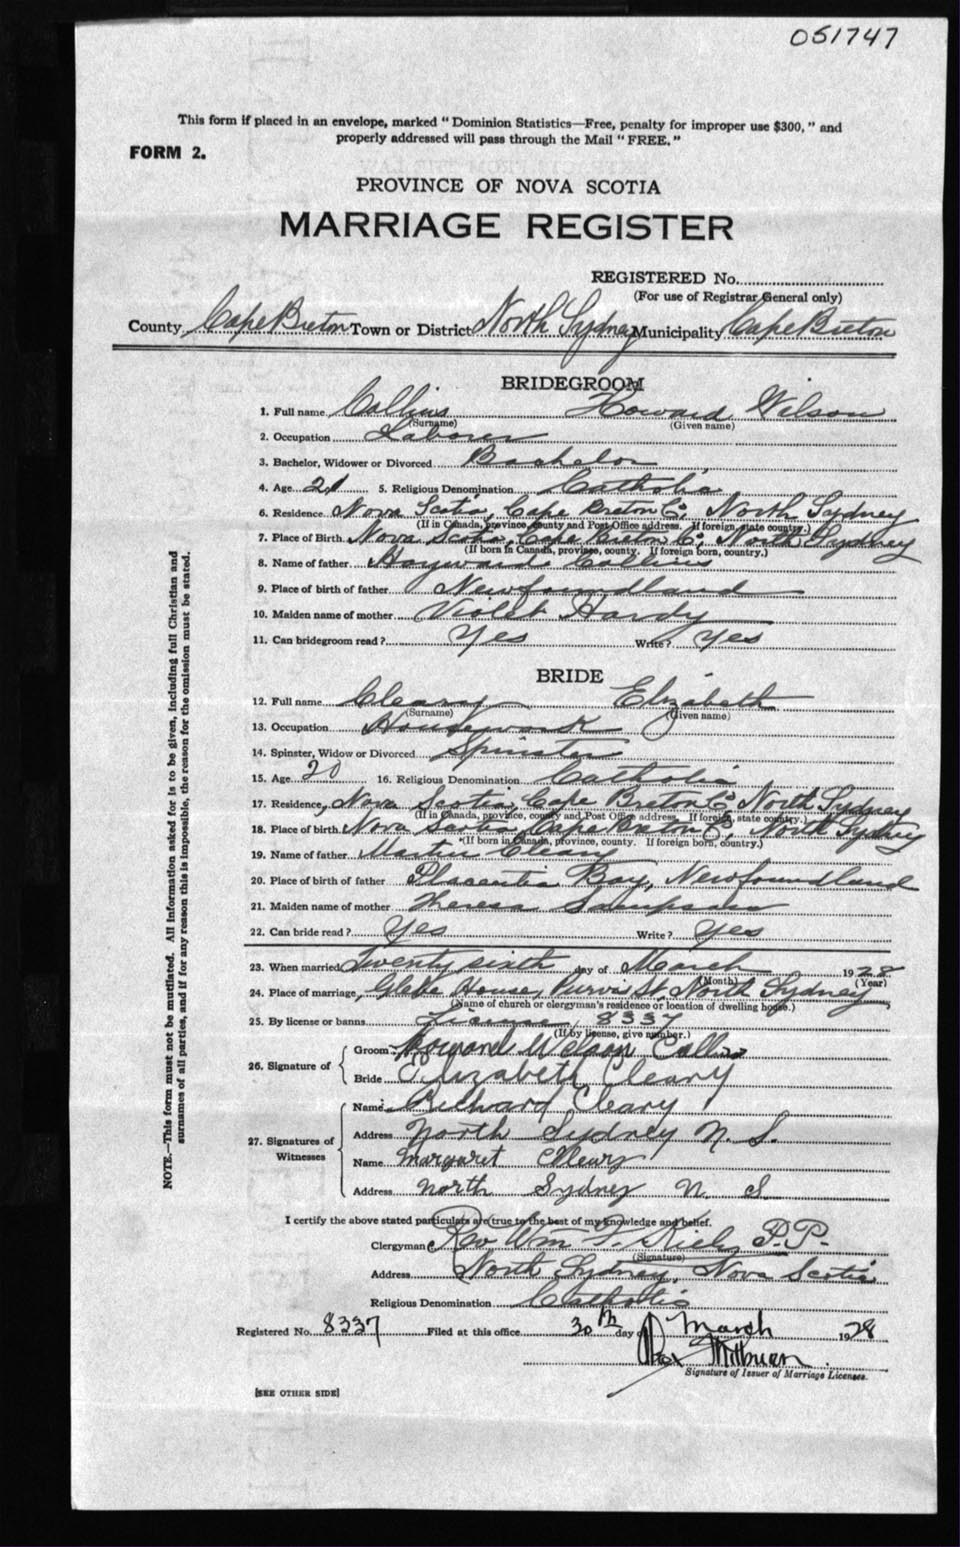 051747
This form if placed in an envelope, marked "Dominion Statistics—Free, penalty for improper use $300," and
properly addressed will pass through the Mail "FREE."
FORM 2.
PROVINCE OF NOVA SCOTIA
MARRIAGE REGISTER
REGISTERED No.
(For use of Registrar General only)
County Cape Breton Town or District North Sydney Municipality Cape Breton
BRIDEGROOM
1. Full name Collins Howard Wilson
(Surname) (Given name)
2. Occupation Laborer
3. Bachelor, Widower or Divorced Bachelor
4. Age 21 5. Religious Denomination Catholic
6. Residence Nova Scotia, Cape Breton Co, North Sydney
(If in Canada, province, county and Post Office address. If foreign, state country.)
7. Place of Birth Nova Scotia, Cape Breton Co, North Sydney
(If born in Canada, province, county. If foreign born, country.)
8. Name of father Haywards Collins
9. Place of birth of father Newfoundland
10. Maiden name of mother Violet Hardy
11. Can bridegroom read? Yes Write? Yes
BRIDE
12. Full name Cleary Elizabeth
(Surname) (Given name)
13. Occupation Housework
14. Spinster, Widow or Divorced Spinster
15. Age 20 16. Religious Denomination Catholic
17. Residence, Nova Scotia, Cape Breton Co North Sydney
(If in Canada, province, county and Post Office address. If foreign, state country.)
18. Place of birth Nova Scotia, Cape Breton Co, North Sydney
(If born in Canada, province, county. If foreign born, country.)
19. Name of father Martin Cleary
20. Place of birth of father Placentia Bay, Newfoundland
21. Maiden name of mother Theresa Sampson
22. Can bride read? Yes Write? Yes
23. When married Twenty sixth day of March 1928
(Month) (Year)
24. Place of marriage, Glebe House, Purves St, North Sydney
(Name of church or clergyman's residence or location of dwelling house.)
25. By license or banns License, 8337
(If by license, give number.)
26. Signature of
Groom Howard Wilson Collins
Bride Elizabeth Cleary
27. Signatures of Witnesses
Name Richard Cleary
Address North Sydney N. S.
Name Margaret Cleary
Address North Sydney N S
I certify the above stated particulars are true to the best of my knowledge and belief.
Clergyman Rev Wm F. P.P.
(Signature)
Address North Sydney, Nova Scotia
Religious Denomination Catholic
Registered No. 8337 Filed at this office 30th day of March 1928
Signature of Issuer of Marriage Licenses.
[SEE OTHER SIDE]
NOTE.—This form must not be mutilated. All information asked for is to be given, including full Christian and
surnames of all parties, and if for any reason this is impossible, the reason for the omission must be stated.